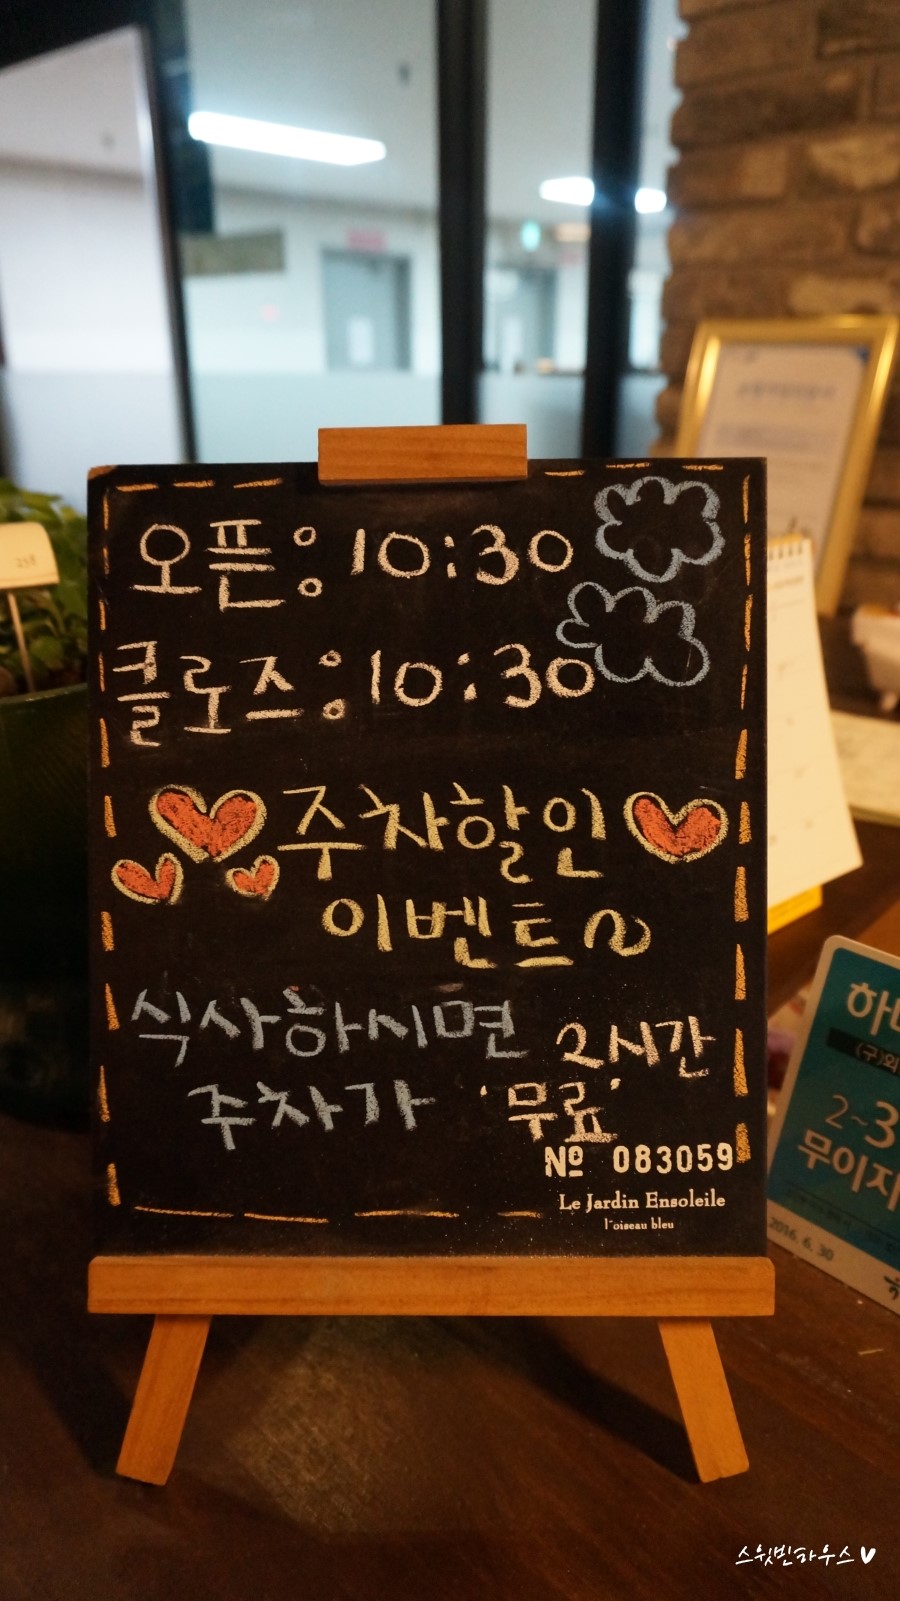 오픈: 10:30
클로즈: 10:30
주차할인
이벤트~
식사하시면 2시간
주차가 '무료'
№ 083059
Le Jardin Ensoleile
l'oiseau bleu
253
2~3
무이자
2016. 6. 30
스윗빈하우스